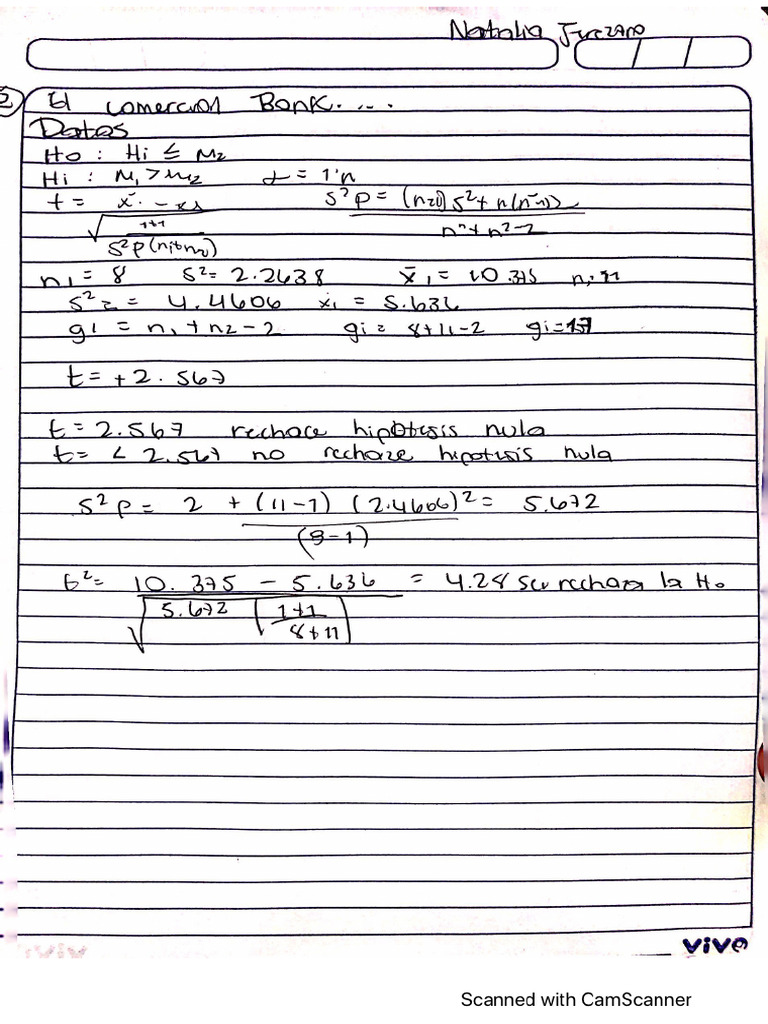 Natalia
2 El comercial Bank....
Datos
Ho : Hi ≤ M2
Hi : M1 > M2 α = 1%
t = x̄ - x2 S²p = (n-1) S² + n(n-1)
√ 1+1 n + n² - 2
S²p (n1+n2)
n1 = 8 S² = 2.2638 x̄1 = 10.375 n = 11
S²2 = 4.4606 x̄1 = 5.636
gl = n1 + n2 - 2 gl = 8+11-2 gl = 17
t = +2.567
t = 2.567 rechace hipotesis nula
t = < 2.567 no rechaze hipotesis nula
S²p = 2 + (11-1) (2.4606)² = 5.672
(8-1)
t² = 10.375 - 5.636 = 4.28 se rechaza la Ho
√ 5.672 ( 1+1
8+11 )
vive
Scanned with CamScanner